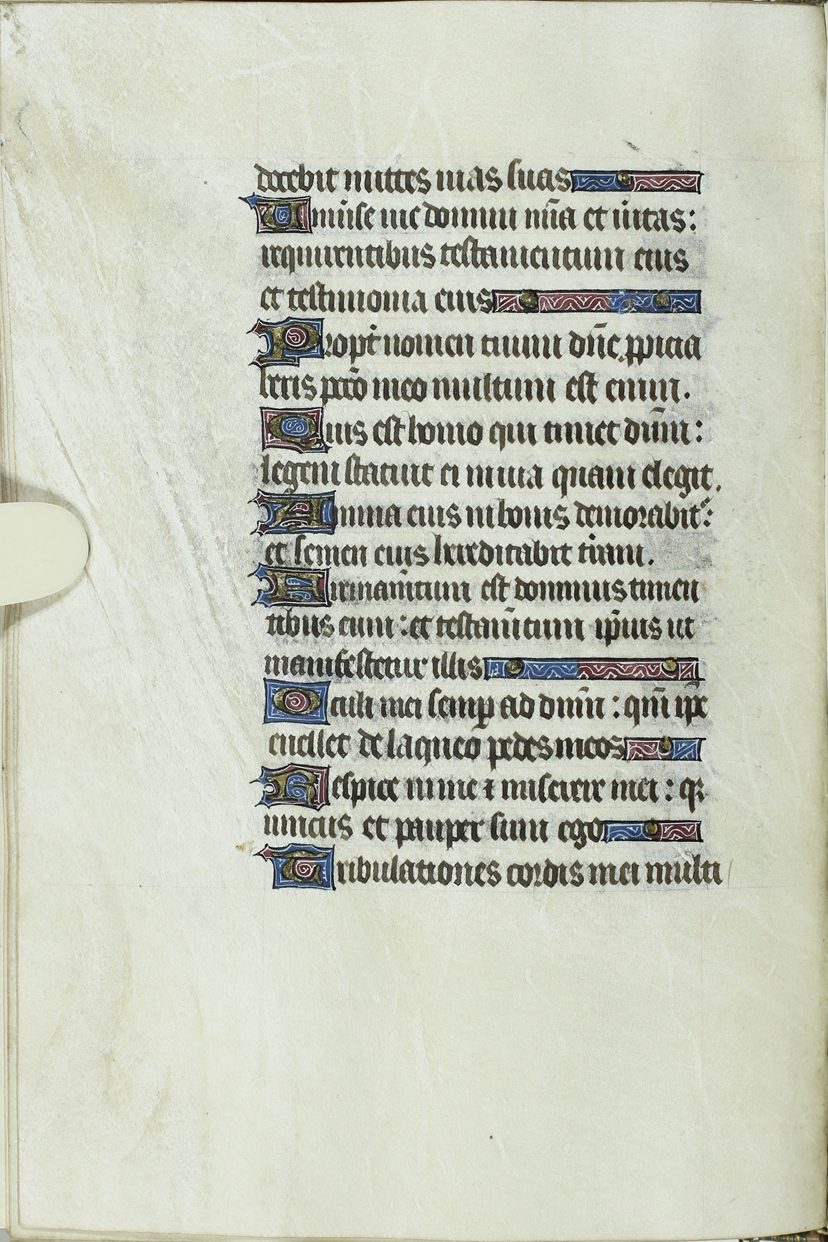 docebit mittes uias suas
Uniu̅se uie domini mi̅a et ue̅itas:
requirentibus testamentum eius
et testimonia eius
Propt̉ nomen tuum dn̅e ppicia
beris pcc̅o meo multum est enim.
Quis est homo qui timet dn̅m:
legem statuit ei in uia quam elegit.
Anima eius in bonis demorabit᷑:
et semen eius hereditabit tr̅am.
Firmam̅tum est dominus timen
tibus eum: et testam̅tum ip̅ius ut
manifestetur illis
Oculi mei semp ad dn̅m: qm̅ ip̅e
euellet de laqueo pedes meos
Respice in me ⁊ miserere mei: qꝛ
unicus et pauper sum ego
Tribulationes cordis mei multi